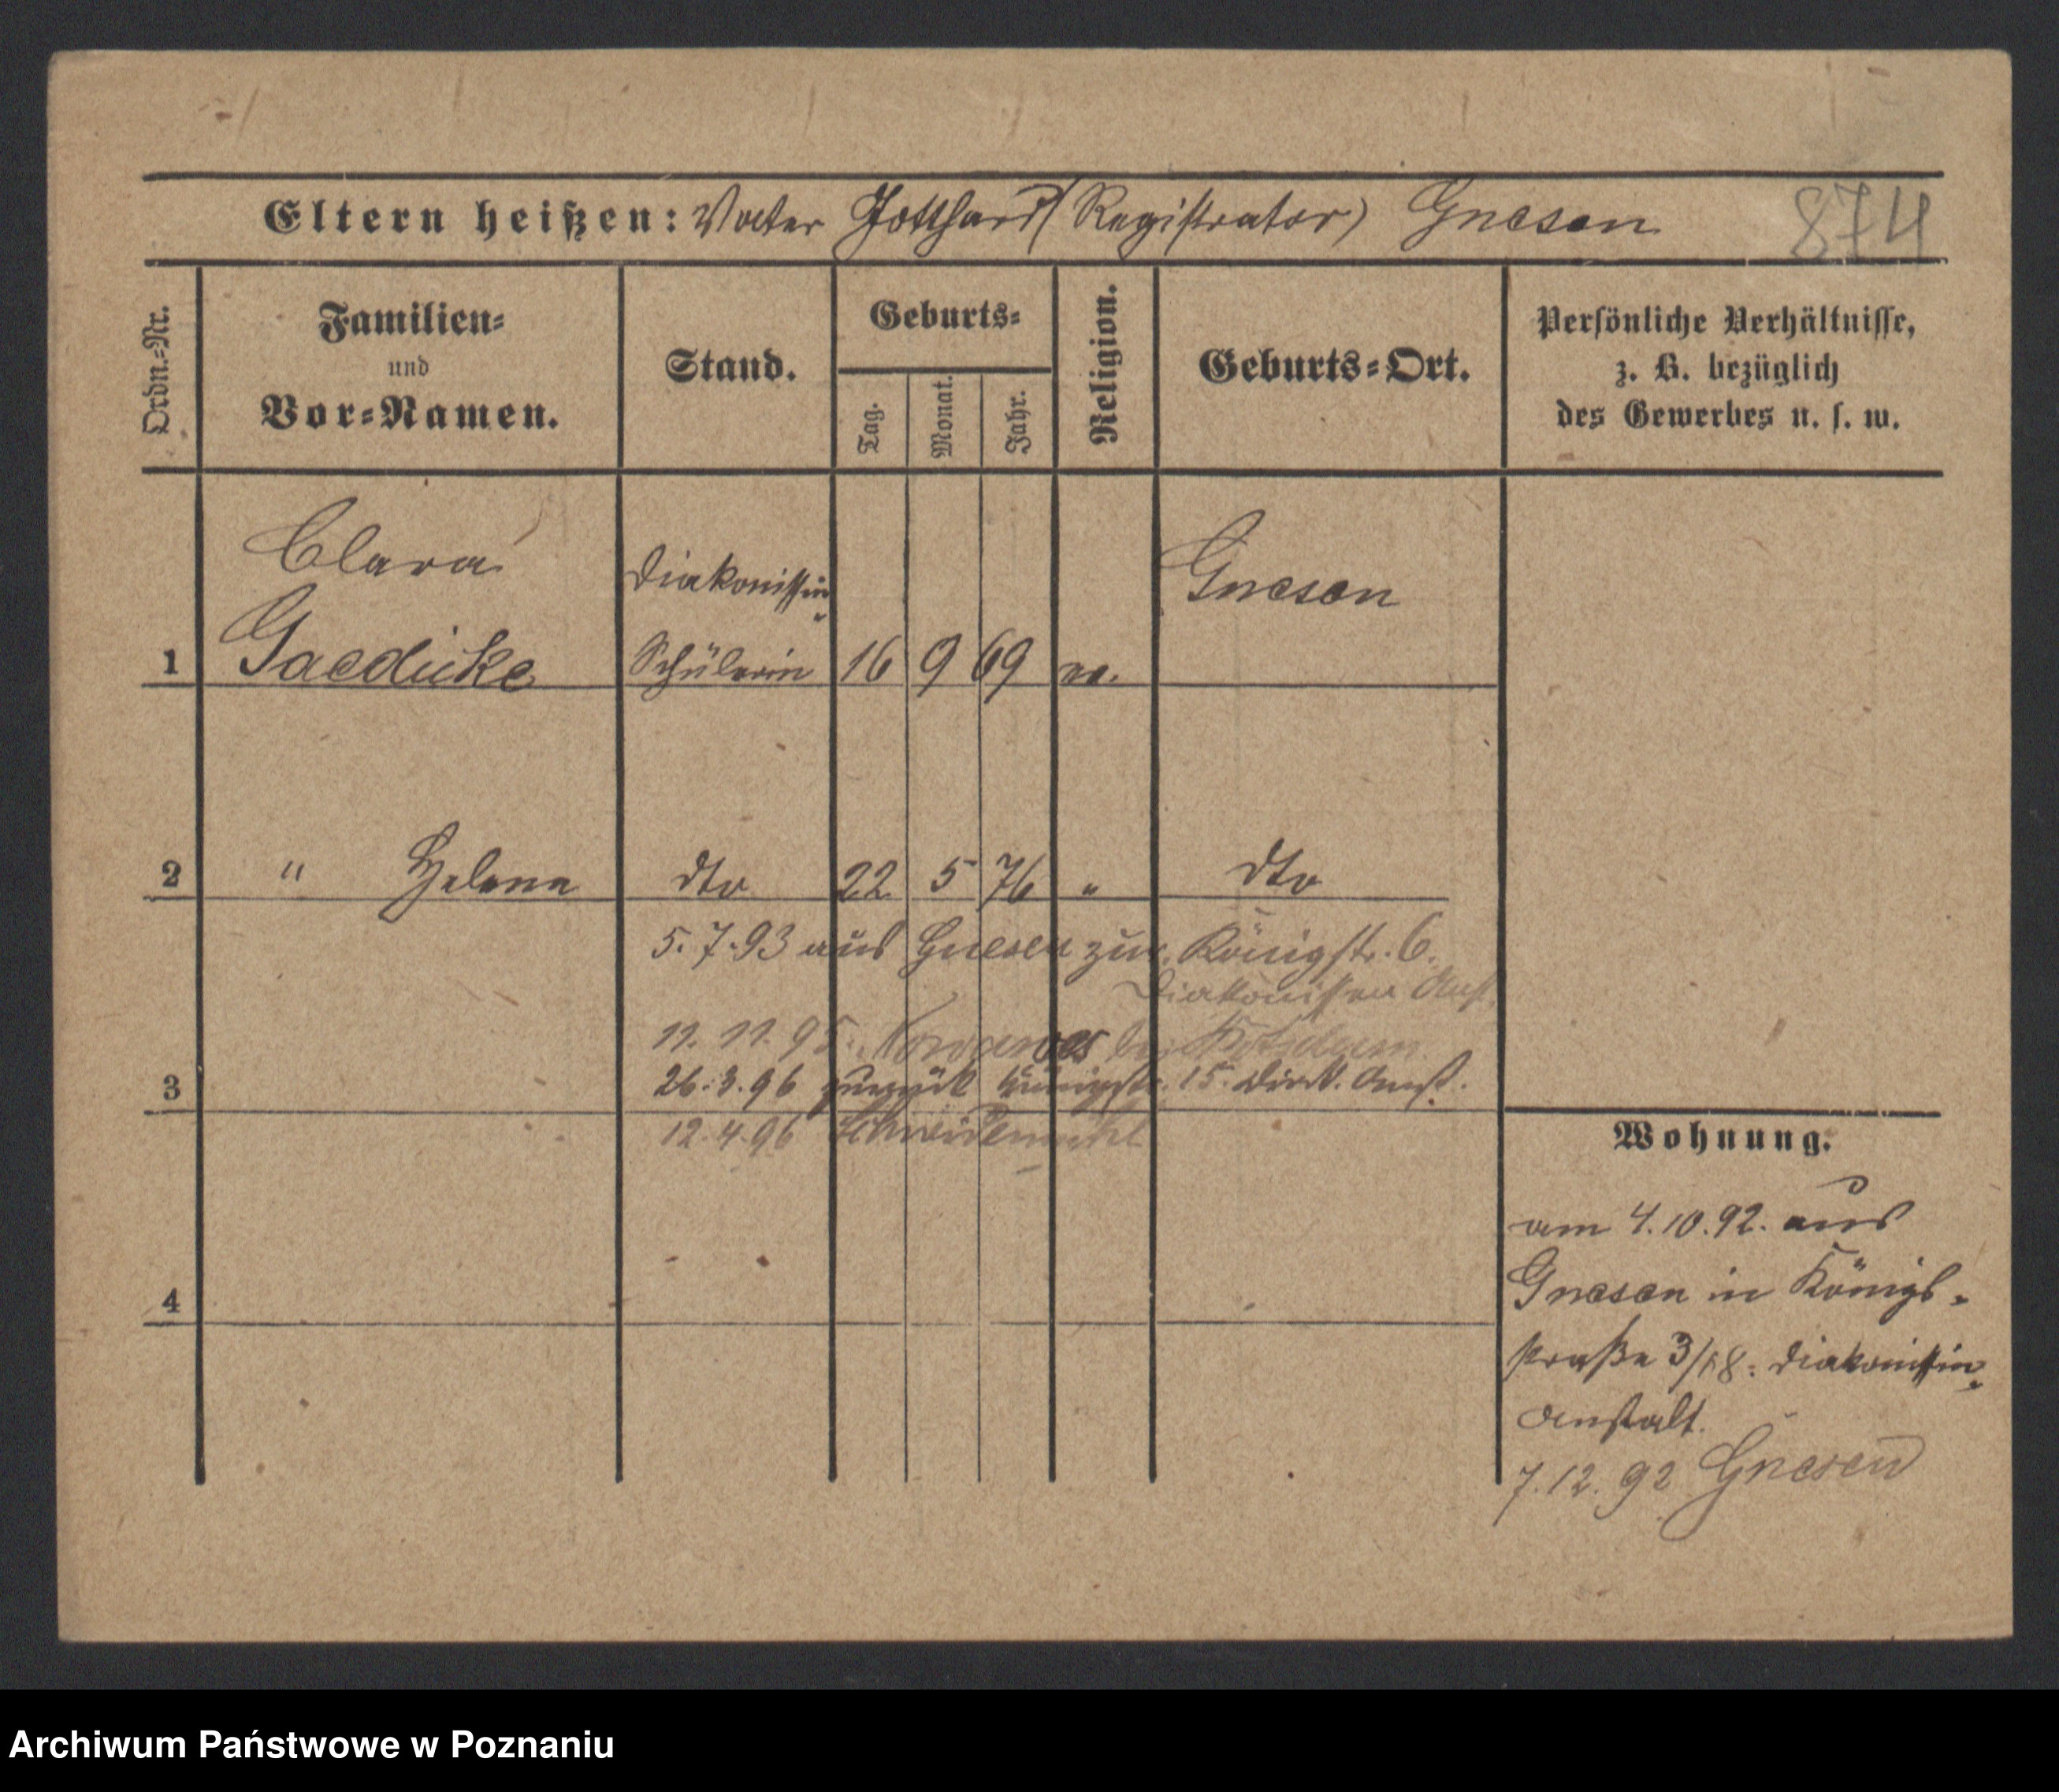 Eltern heißen: Vater Gotthard (Registrator) Gnesen 874
Ordn.-Nr.
Familien-
und
Vor-Namen.
Stand.
Geburts-
Tag.
Monat.
Jahr.
Religion.
Geburts-Ort.
Persönliche Verhältnisse,
z. B. bezüglich
des Gewerbes u. s. w.
Clara Diakonissin Gnesen
1 Gaedicke Schülerin 16 9 69
2 " Helene dto 22 5 76 " dto
5.7.93 aus Gnesen zur. Königstr. 6.
Diakonissen Anst.
11.11.95. Nowawes bei Potsdam
3 26.3.96 zurück Königstr. 15. Diak. Anst.
12.4.96 Schneidemühl
Wohnung.
am 4.10.92. aus
4 Gnesen in Königs-
straße 3/18: Diakonissin
anstalt.
7.12.92 Gnesen
Archiwum Państwowe w Poznaniu